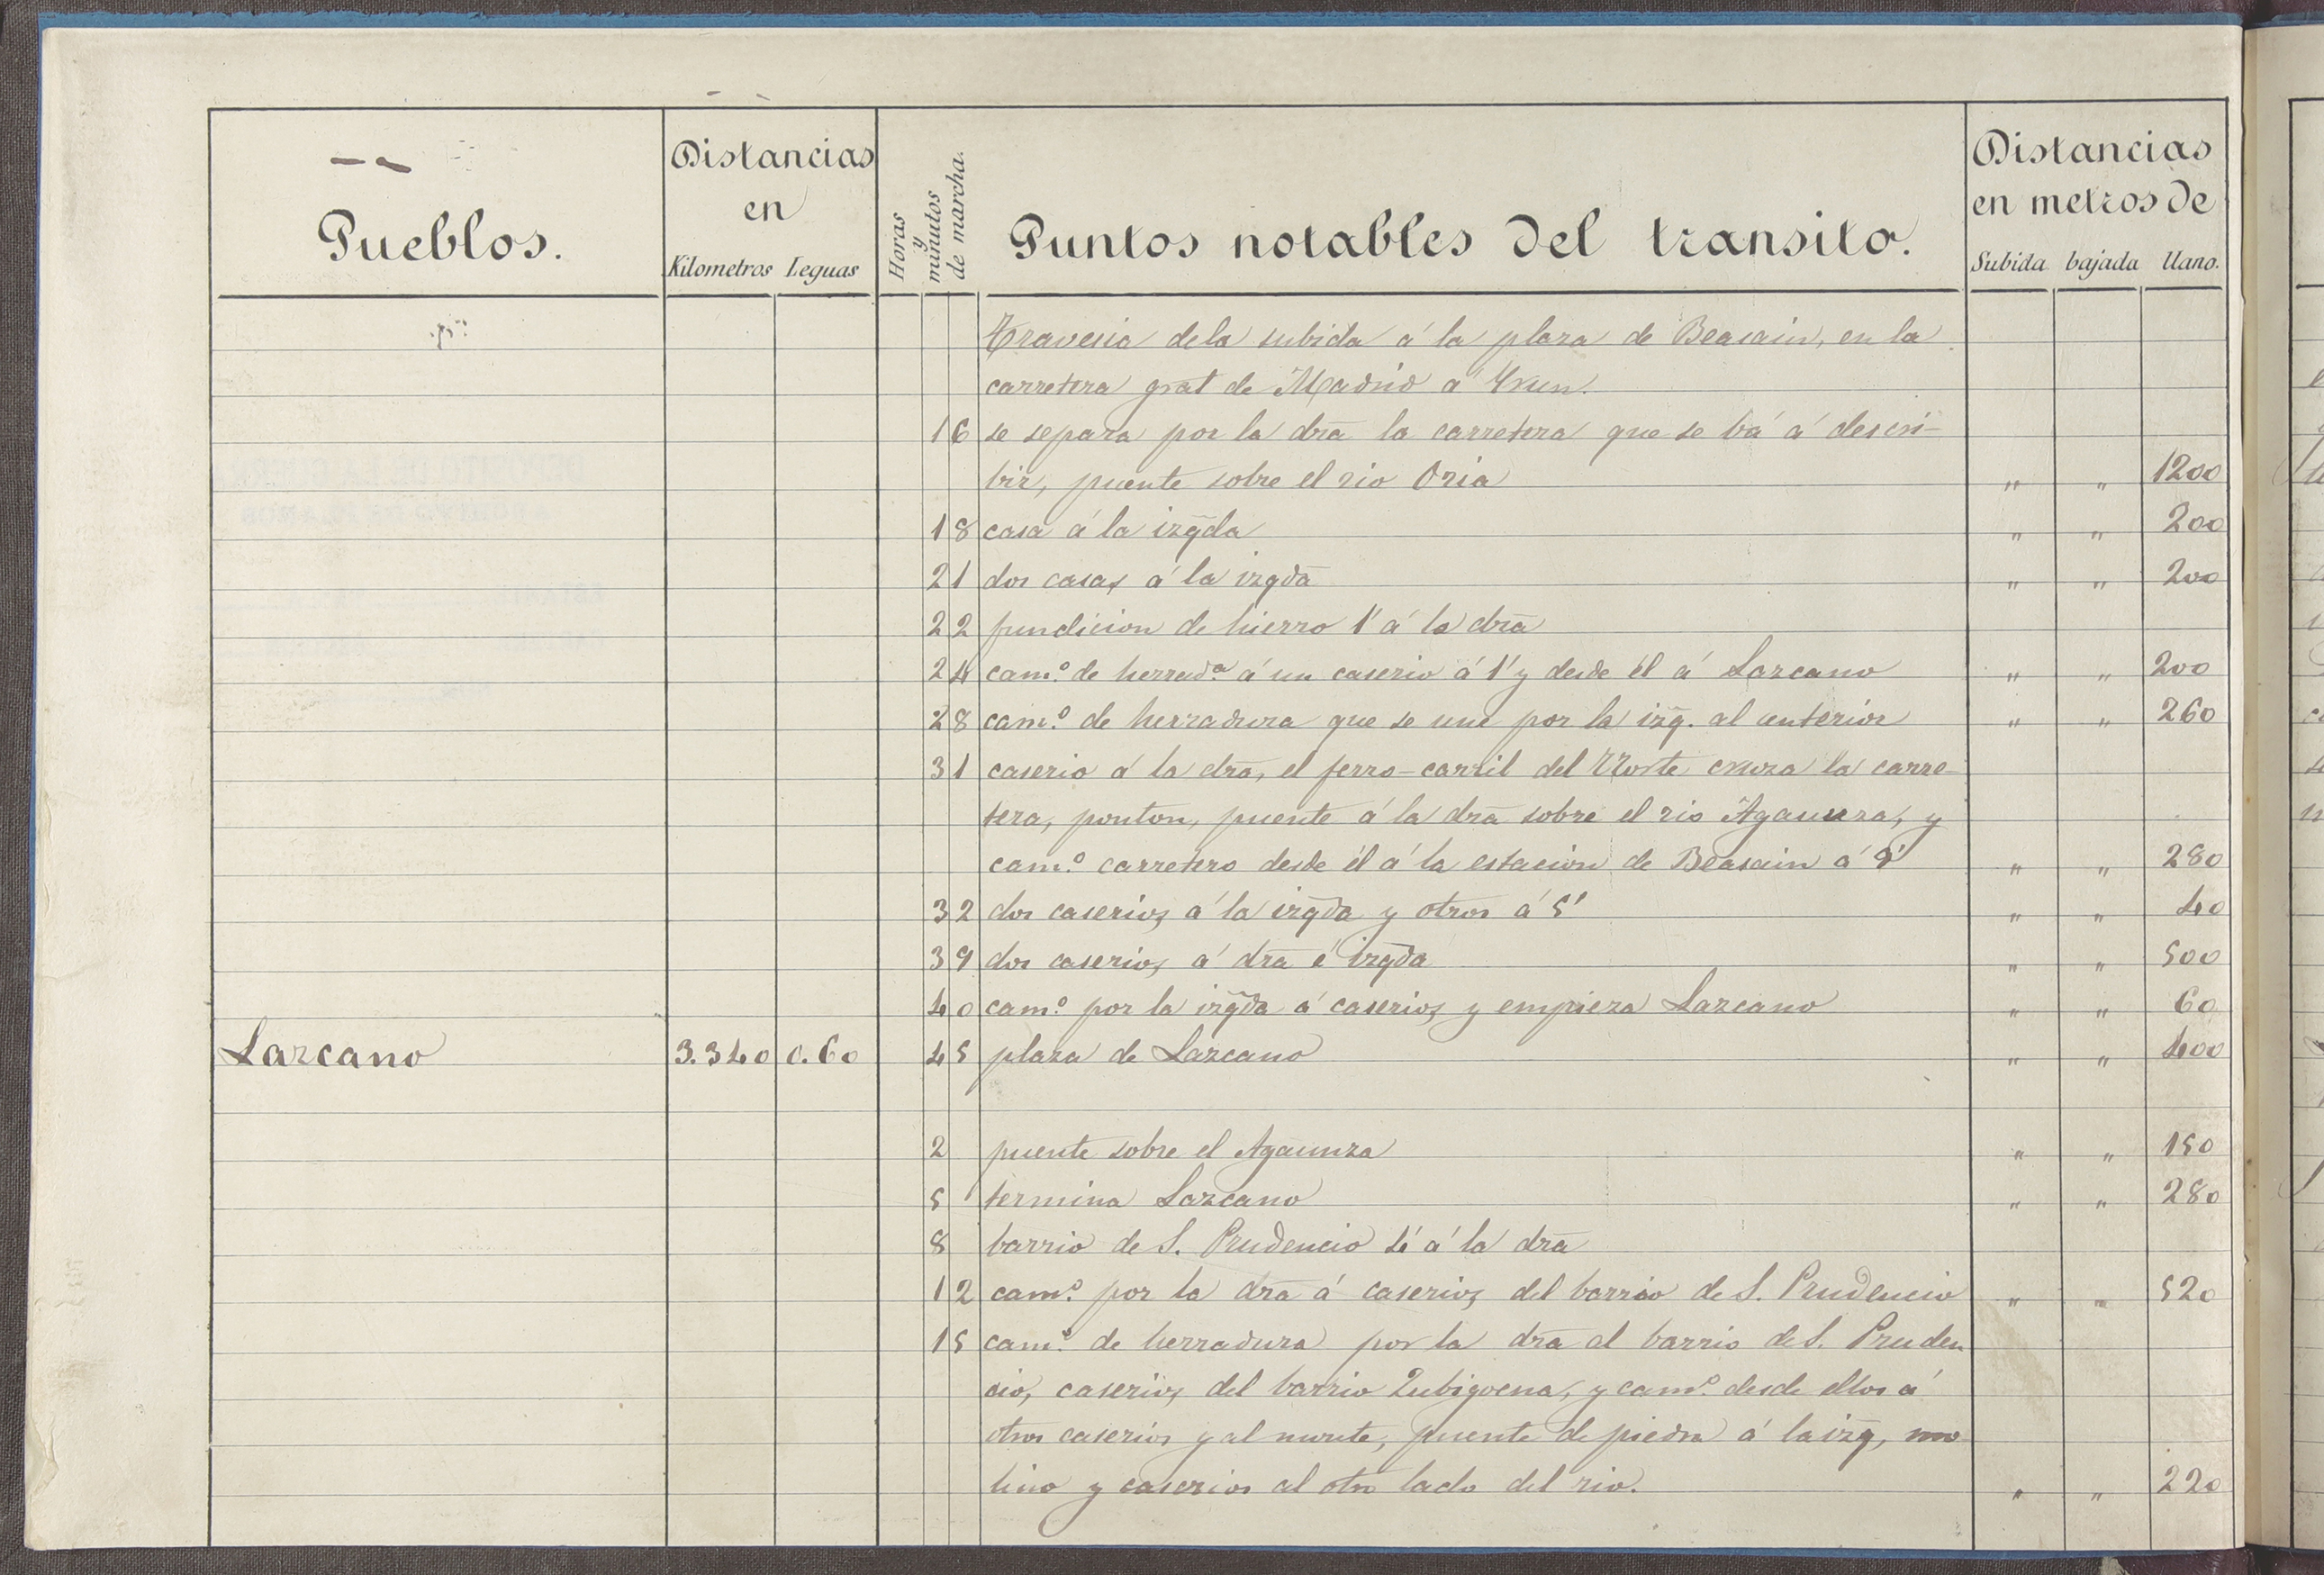 Pueblos.
Distancias
en
Kilometros Leguas
Horas
y
minutos
de marcha.
Puntos notables del transito.
Distancias
en metros de
Subida bajada llano.
Travesia de la subida á la plaza de Beasain, en la
carretera gral de Madrid á Yrun.
16 se separa por la dra la carretera que se bá á descri-
bir, puente sobre el rio Oria " " 1200
18 casa á la izqda " " 200
21 dos casas á la izqda " " 200
22 fundicion de hierro 1' á la dra
24 cam.º de herrad.ª á un caserio á 1' y desde él á Lazcano " " 200
28 cam.º de herradura que se une por la izq. al anterior " " 260
31 caserio á la dra, el ferro-carril del Norte cruza la carre-
tera, ponton, puente á la dra sobre el rio Agaunza, y
cam.º carretero desde él á la estacion de Beasain á 9' " " 280
32 dos caserios á la izqda y otros á 5' " " 40
39 dos caserios á dra é izqda " " 500
40 cam.º por la izqda á caserios y empieza Lazcano " " 60
Lazcano 3.340 0.60 45 plaza de Lazcano " " 400
2 puente sobre el Agaunza " " 150
5 termina Lazcano " " 280
8 barrio de S. Prudencio 4' á la dra
12 cam.º por la dra á caserios del barrio de S. Prudencio " " 520
15 cam.º de herradura por la dra al barrio de S. Pruden
cio, caserios del barrio Zubigoena, y cam.º desde ellos á
otros caserios y al monte, puente de piedra á la izq, mo
lino y caserios al otro lado del rio. " " 220